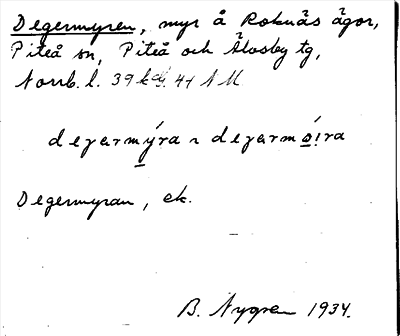 Degermyren, myr å Roknäs ägor,
Piteå sn, Piteå och Älvsby tg,
Norrb. l. 39 41 NU
degarmýra ~ degarmó̤ira
Degermyran, ek.
B. Nygren 1934.